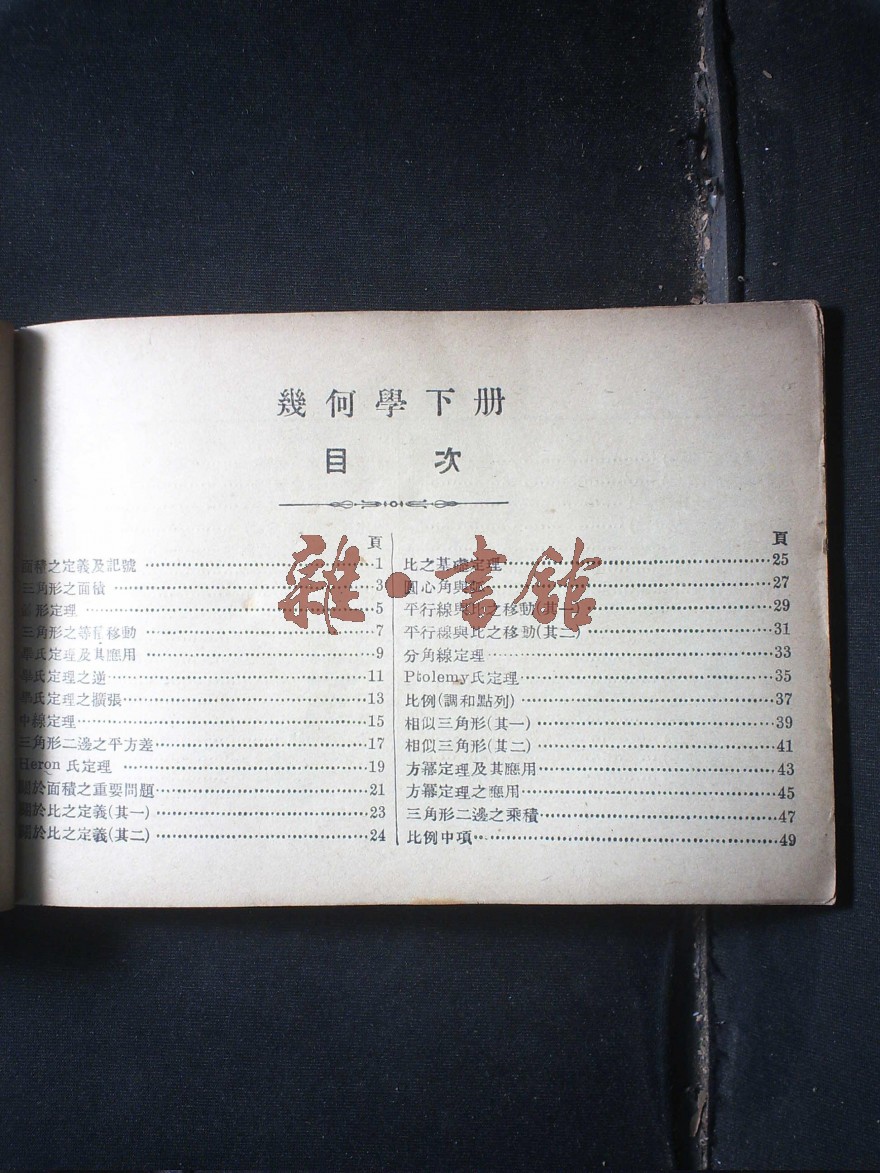 幾何學下册
目次
頁
面積之定義及記號 1
三角形之面積 3
形定理 5
三角形之等積移動 7
畢氏定理及其應用 9
畢氏定理之逆 11
畢氏定理之擴張 13
中線定理 15
三角形二邊之平方差 17
Heron 氏定理 19
關於面積之重要問題 21
關於比之定義(其一) 23
關於比之定義(其二) 24
頁
比之基礎定理 25
圓心角與弧 27
平行線與比之移動(其一) 29
平行線與比之移動(其二) 31
分角線定理 33
Ptolemy氏定理 35
比例(調和點列) 37
相似三角形(其一) 39
相似三角形(其二) 41
方冪定理及其應用 43
方冪定理之應用 45
三角形二邊之乘積 47
比例中項 49
雜·書館